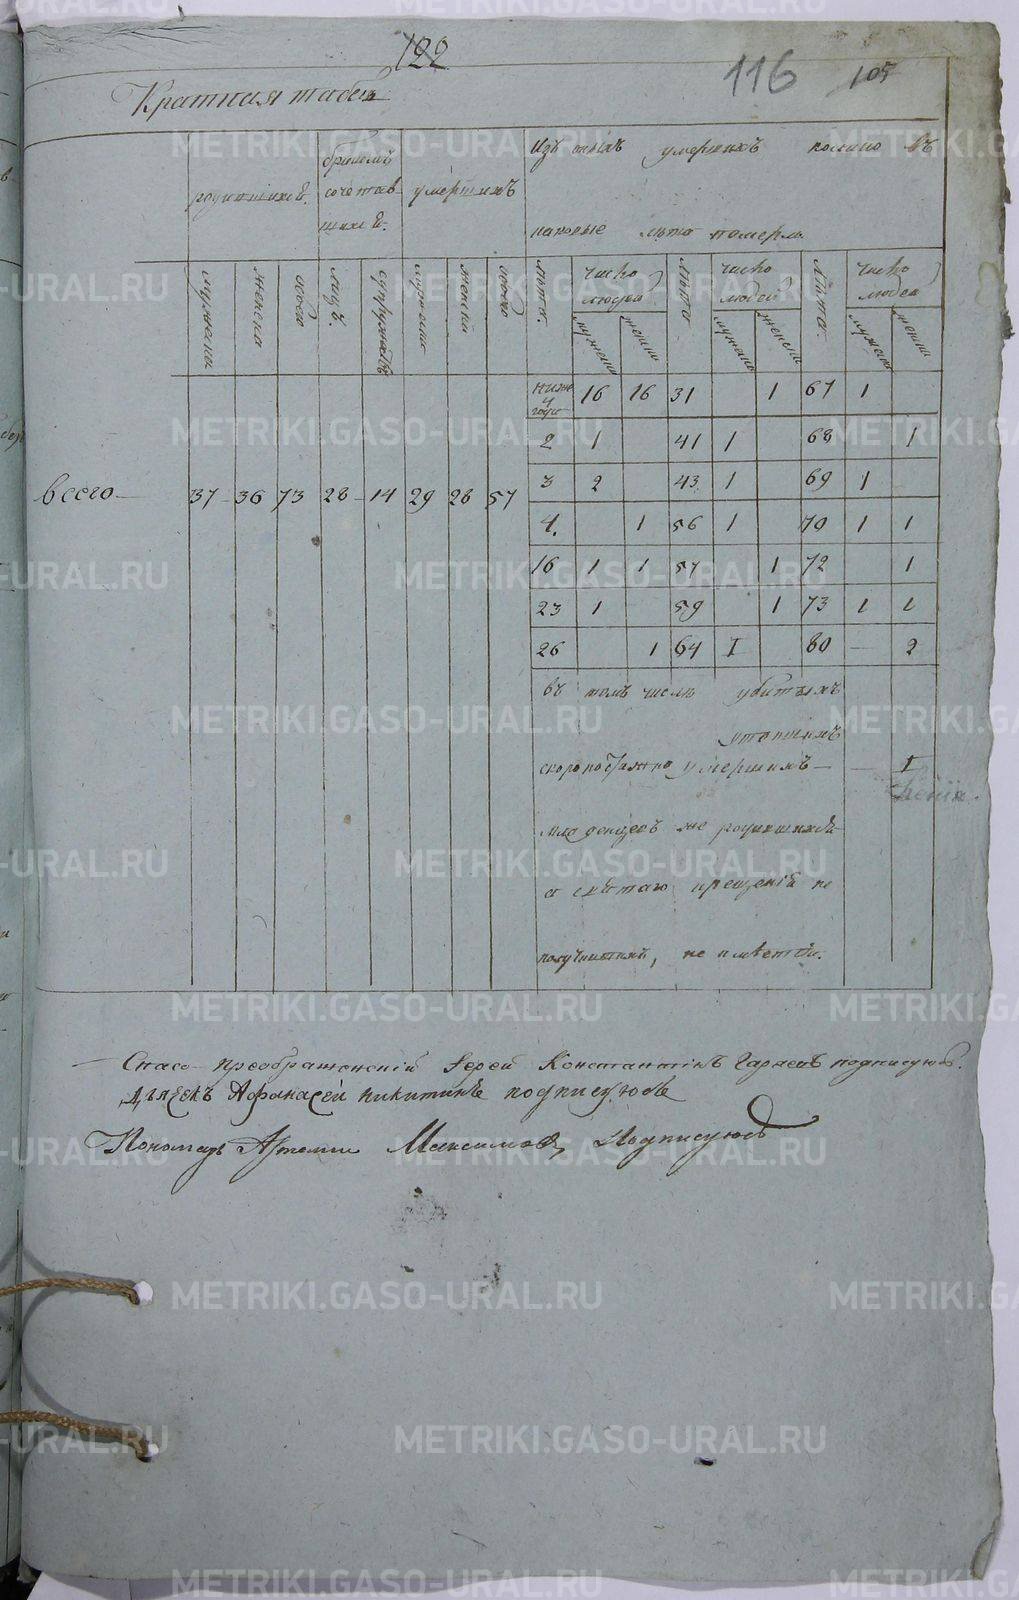 122
116
105
Краткая табель
родившихся
браком сочетавшихся
умершихъ
изъ техъ умершихъ колико въ
каковые лета померло
мужска
женска
обоего
лицъ
супружествъ
мужска
женска
обоего
лета
число людей
мужска
женска
лета
число людей
мужска
женска
лета
число людей
мужска
женска
ниже 1 года 16 16 31 1 67 1
2 1 41 1 68 1
3 2 43 1 69 1
всего 37 36 73 28 14 29 28 57
4. 1 56 1 70 1 1
16 1 1 57 1 72 1
23 1 59 1 73 1 1
26 1 64 1 80 2
въ томъ числе убитыхъ
утопшихъ
скоропостижно умершихъ — 1
младенцевъ же родившихся
а святаго крещенїя не
получившихъ, не имеется.
Спасо преображенскїй Iерей Константiнъ подписуюсь.
Дьячекъ Афанасей Никитинъ подписуюсь
Пономарь Артеми Максимовъ Подписуюсь
METRIKI.GASO-URAL.RU